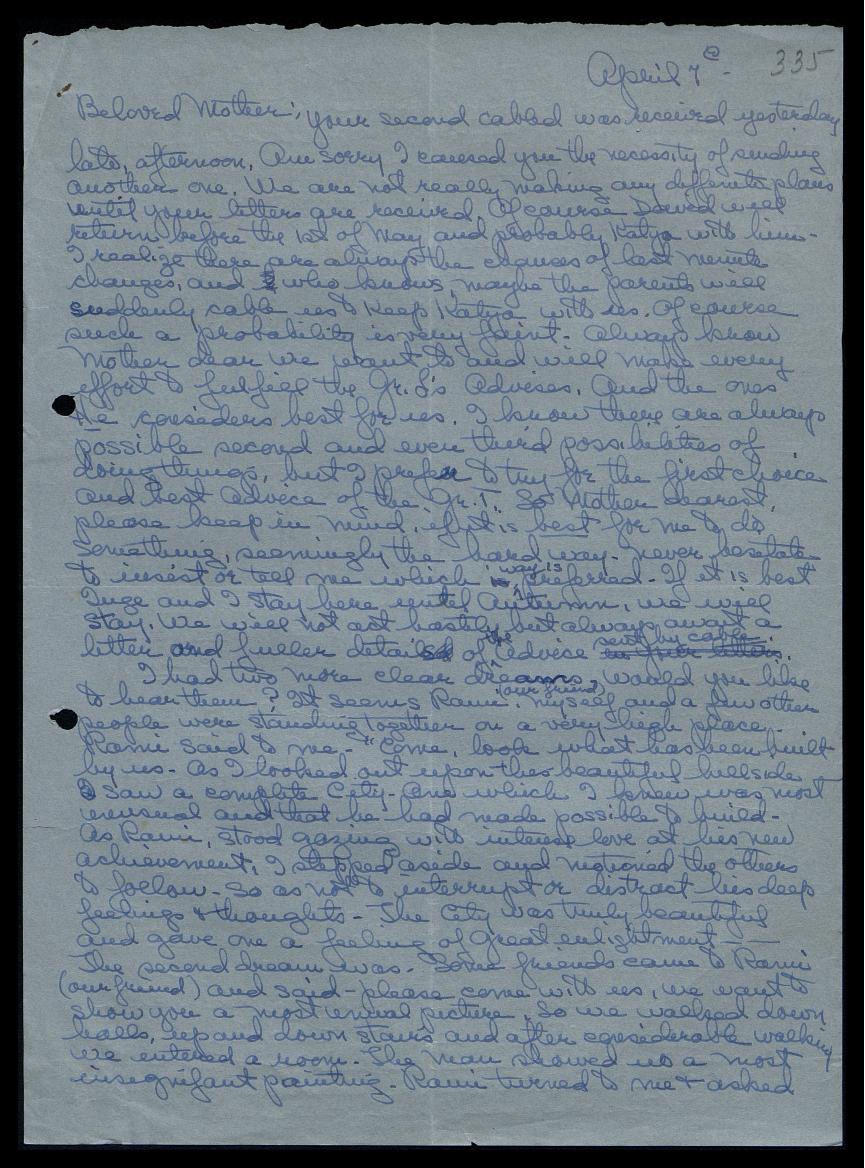 April 7th - 335
Beloved Mother; your second cabled was received yesterday
late, afternoon. Am sorry I caused you the necessity of sending
another one. We are not really making any definite plans
until your letters are received. Of course David will
return before the 1st of May and probably Katya with him -
I realize there are always the chances of last minute
changes, and who knows, maybe the parents will
suddenly cable us to keep Katya with us. Of course
such a probability is very faint. Always know
Mother dear we want to and will make every
effort to fulfill the Gr. L's Advises. And the ones
He considers best for us. I know there are always
possible second and even third possibilities of
doing things, but I prefer to try for the first choice
and best advice of the Gr. T. So Mother dearest,
please keep in mind, if it is best for me to do
something, seemingly the hard way - never hesitate
to insist or tell me which way is preferred - If it is best
Inge and I stay here until Autumn, we will
stay. We will not act hastily but always await a
letter and fuller details of the advice sent by cable in your letters.
I had two more clear dreams, would you like
to hear them? It seems Rami (our friend), myself and a few other
people were standing together on a very high place.
Rami said to me - "come, look what has been built
by us - As I looked out upon this beautiful hillside
I saw a complete City - One which I knew was most
unusual and that he had made possible to build -
As Rami, stood gazing with intense love at his new
achievement, I stepped aside and motioned the others
to follow - so as not to interrupt or distract his deep
feelings & thoughts - The City was truly beautiful
and gave one a feeling of Great enlightment - -
The second dream was - Some friends came to Rami
(our friend) and said - please come with us, we want to
show you a most unual picture. So we walked down
halls, up and down stairs and after considerable walking
we entered a room. The man showed us a most
insignifant painting - Rami turned to me & asked